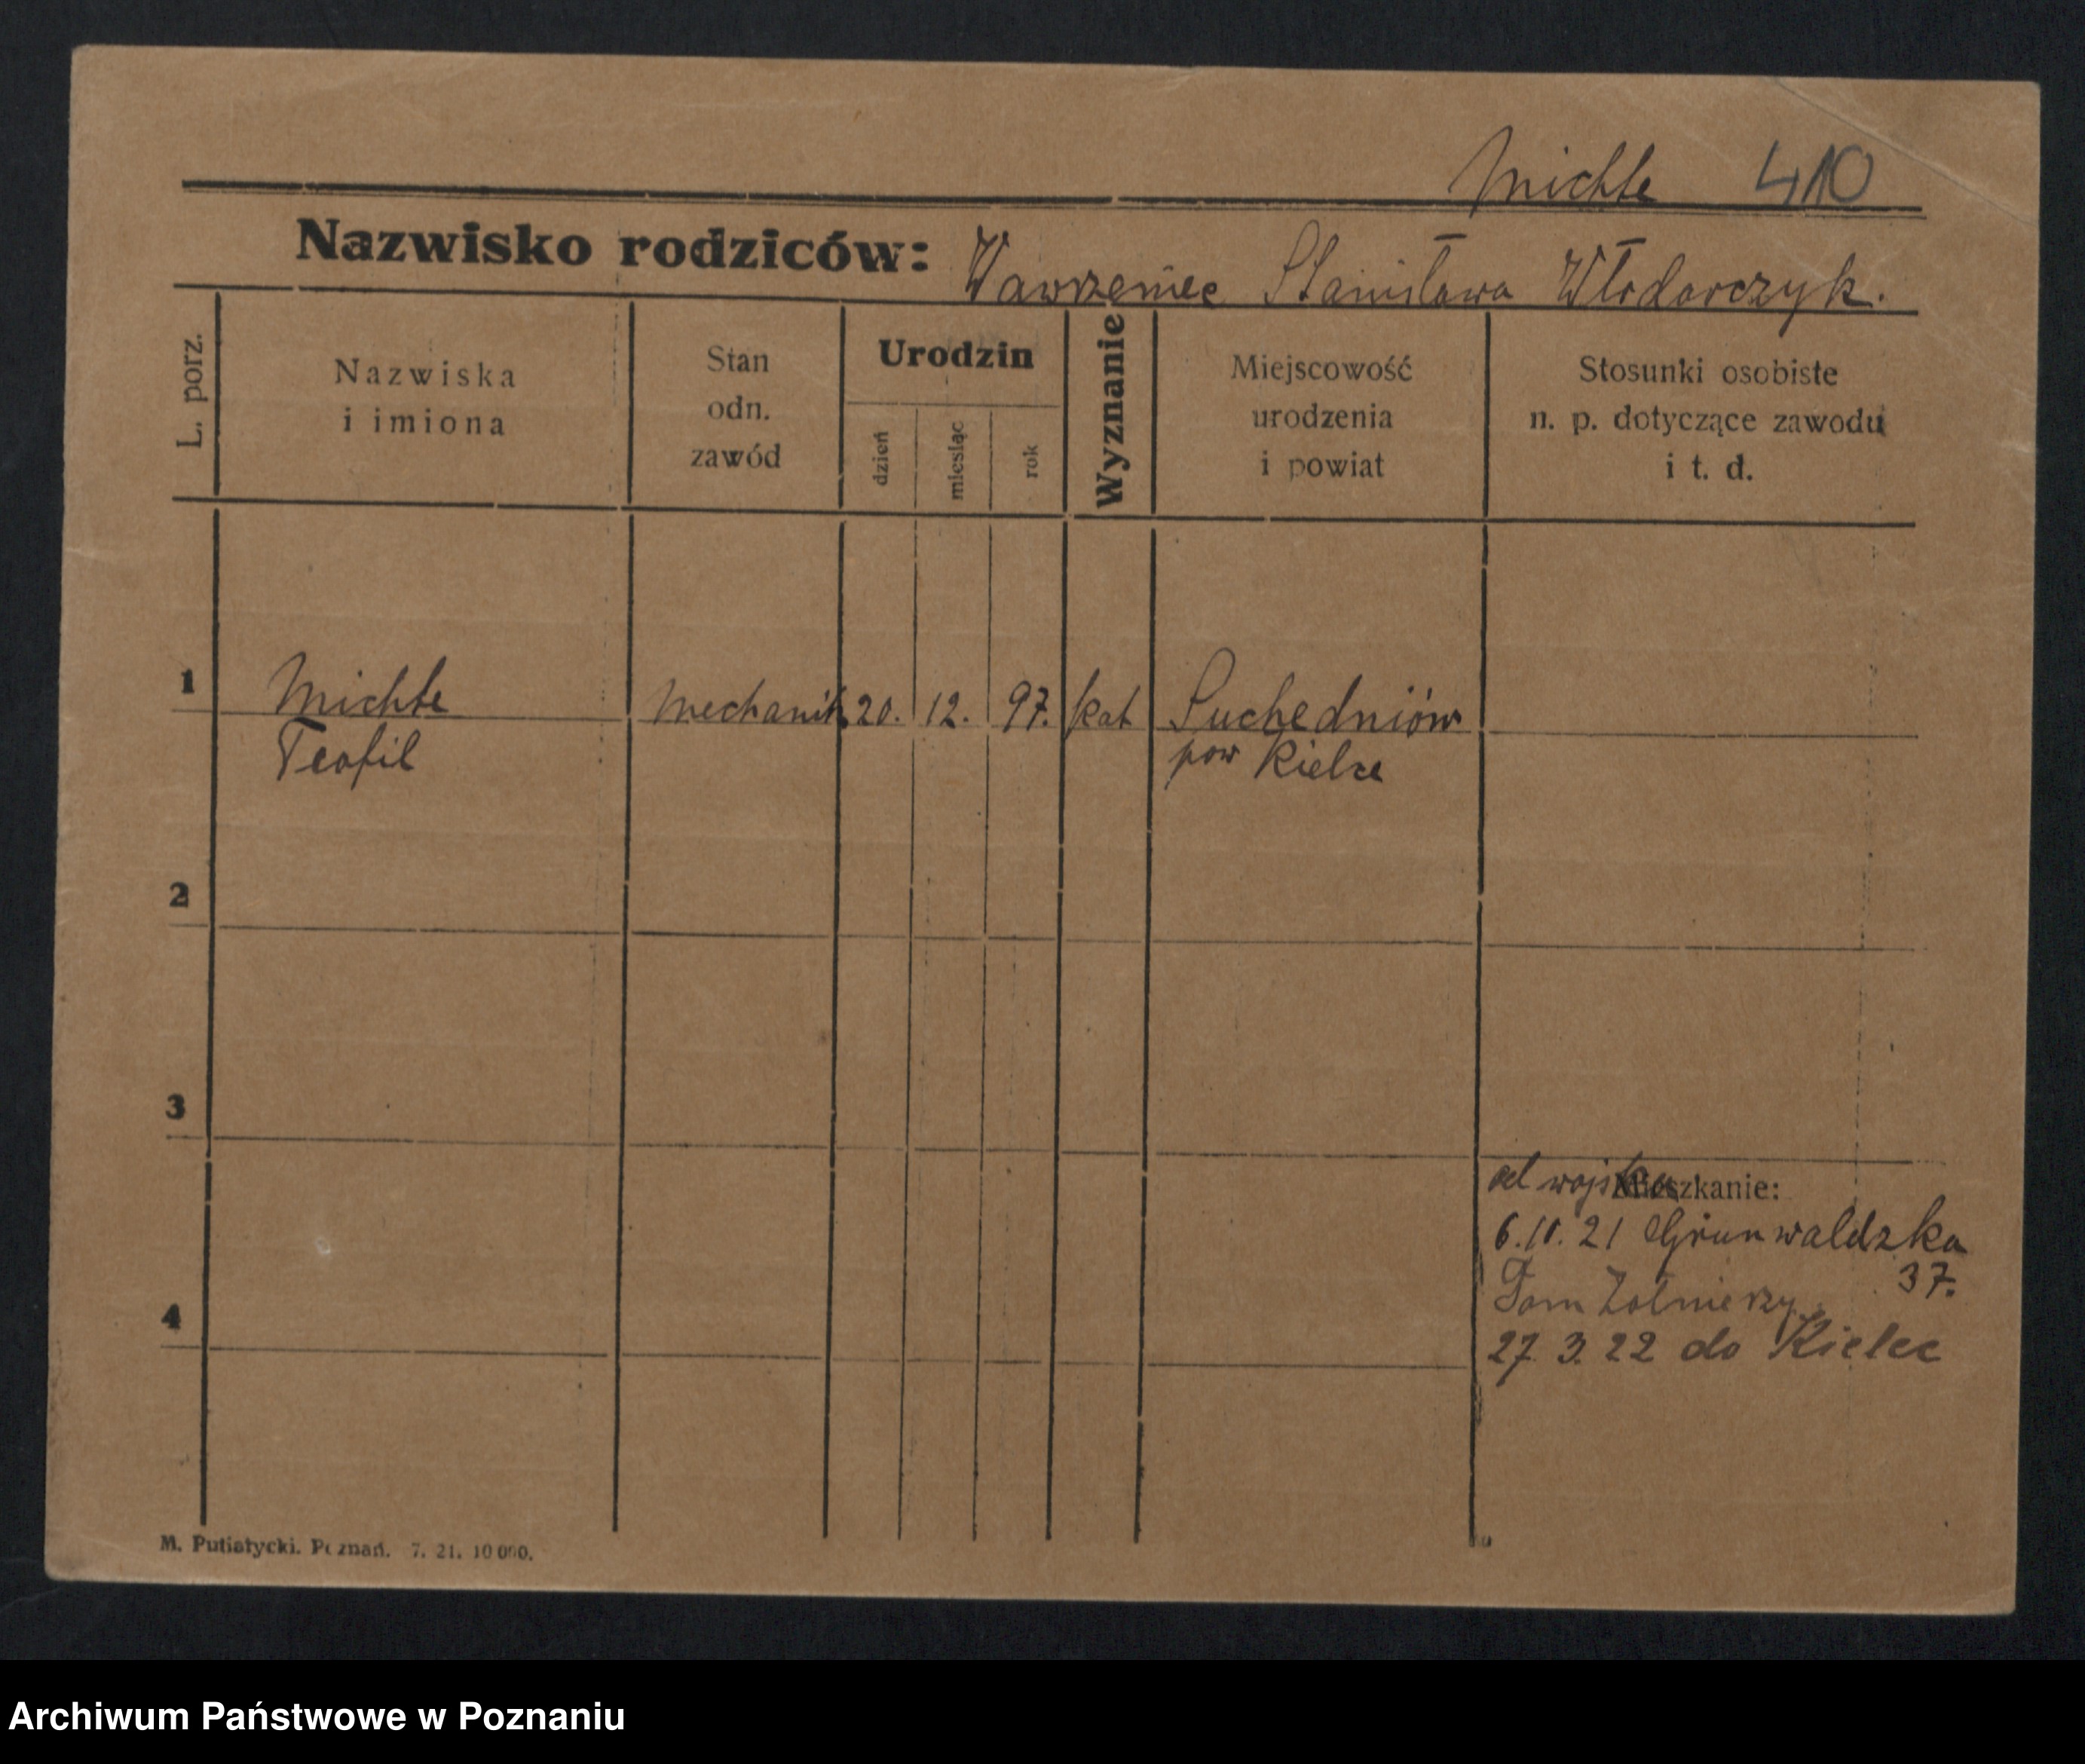 Michte 410
Nazwisko rodziców: Wawrzeniec Stanisława Włodarczyk.
L. porz.
Nazwiska
i imiona
Stan
odn.
zawód
Urodzin
dzień
miesiąc
rok
Wyznanie
Miejscowość
urodzenia
i powiat
Stosunki osobiste
n. p. dotyczące zawodu
i t. d.
1 Michte Mechanik 20. 12. 97. kat Suchedniów
Teofil pow Kielce
2
3
od wojska
Mieszkanie:
6.10.21 Grunwaldzka
37.
Dom Żołnierzy
4
27.3.22 do Kielec
M. Putiatycki. Poznań. 7. 21. 10 000.
Archiwum Państwowe w Poznaniu